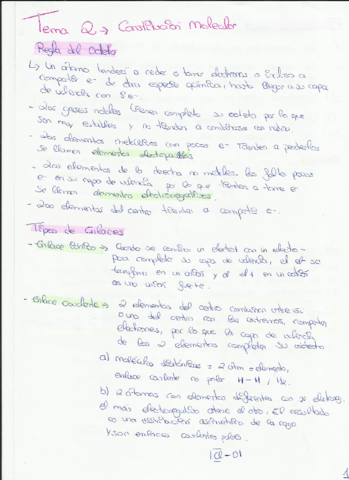 Tema 2 → Constitución Molecular
Regla del Octeto
↳ Un átomo tenderá a ceder o tomar electrones o incluso a
compartir e⁻ de otra especie química, hasta llegar a su capa
de valencia con 8 e⁻.
- Los gases nobles tienen completo su octeto por lo que
son muy estables y no tienden a combinarse
- Los elementos metálicos con pocos e⁻ tienden a perderlos
se llaman elementos electropositivos
- Los elementos de la derecha no metales, les falta pocos
e⁻ en su capa de valencia, por lo que tienden a tomar e⁻
se llaman elementos electronegativos.
- Los elementos del centro tienden a compartir e⁻.
Tipos de Enlaces
- Enlace Iónico → Cuando se combina un electro+ con un electro-
para completar su capa de valencia, el e⁻ se
transforma en un anión y el el + en un catión
es una unión fuerte.
- Enlace covalente → 2 elementos del centro combinan entre sí
o uno del centro con los extremos, comparten
electrones, por lo que la capa de valencia
de los 2 elementos completan su octeto
a) moléculas diatómicas = 2 átom = elemento,
enlace covalente no polar H-H, H₂.
b) 2 átomos con elementos diferentes con ≠ electroneg.
el más electronegativo atrae al otro. El resultado
es una distribución asimétrica de la carga
y son enlaces covalentes polares.
|Cl-Cl
1